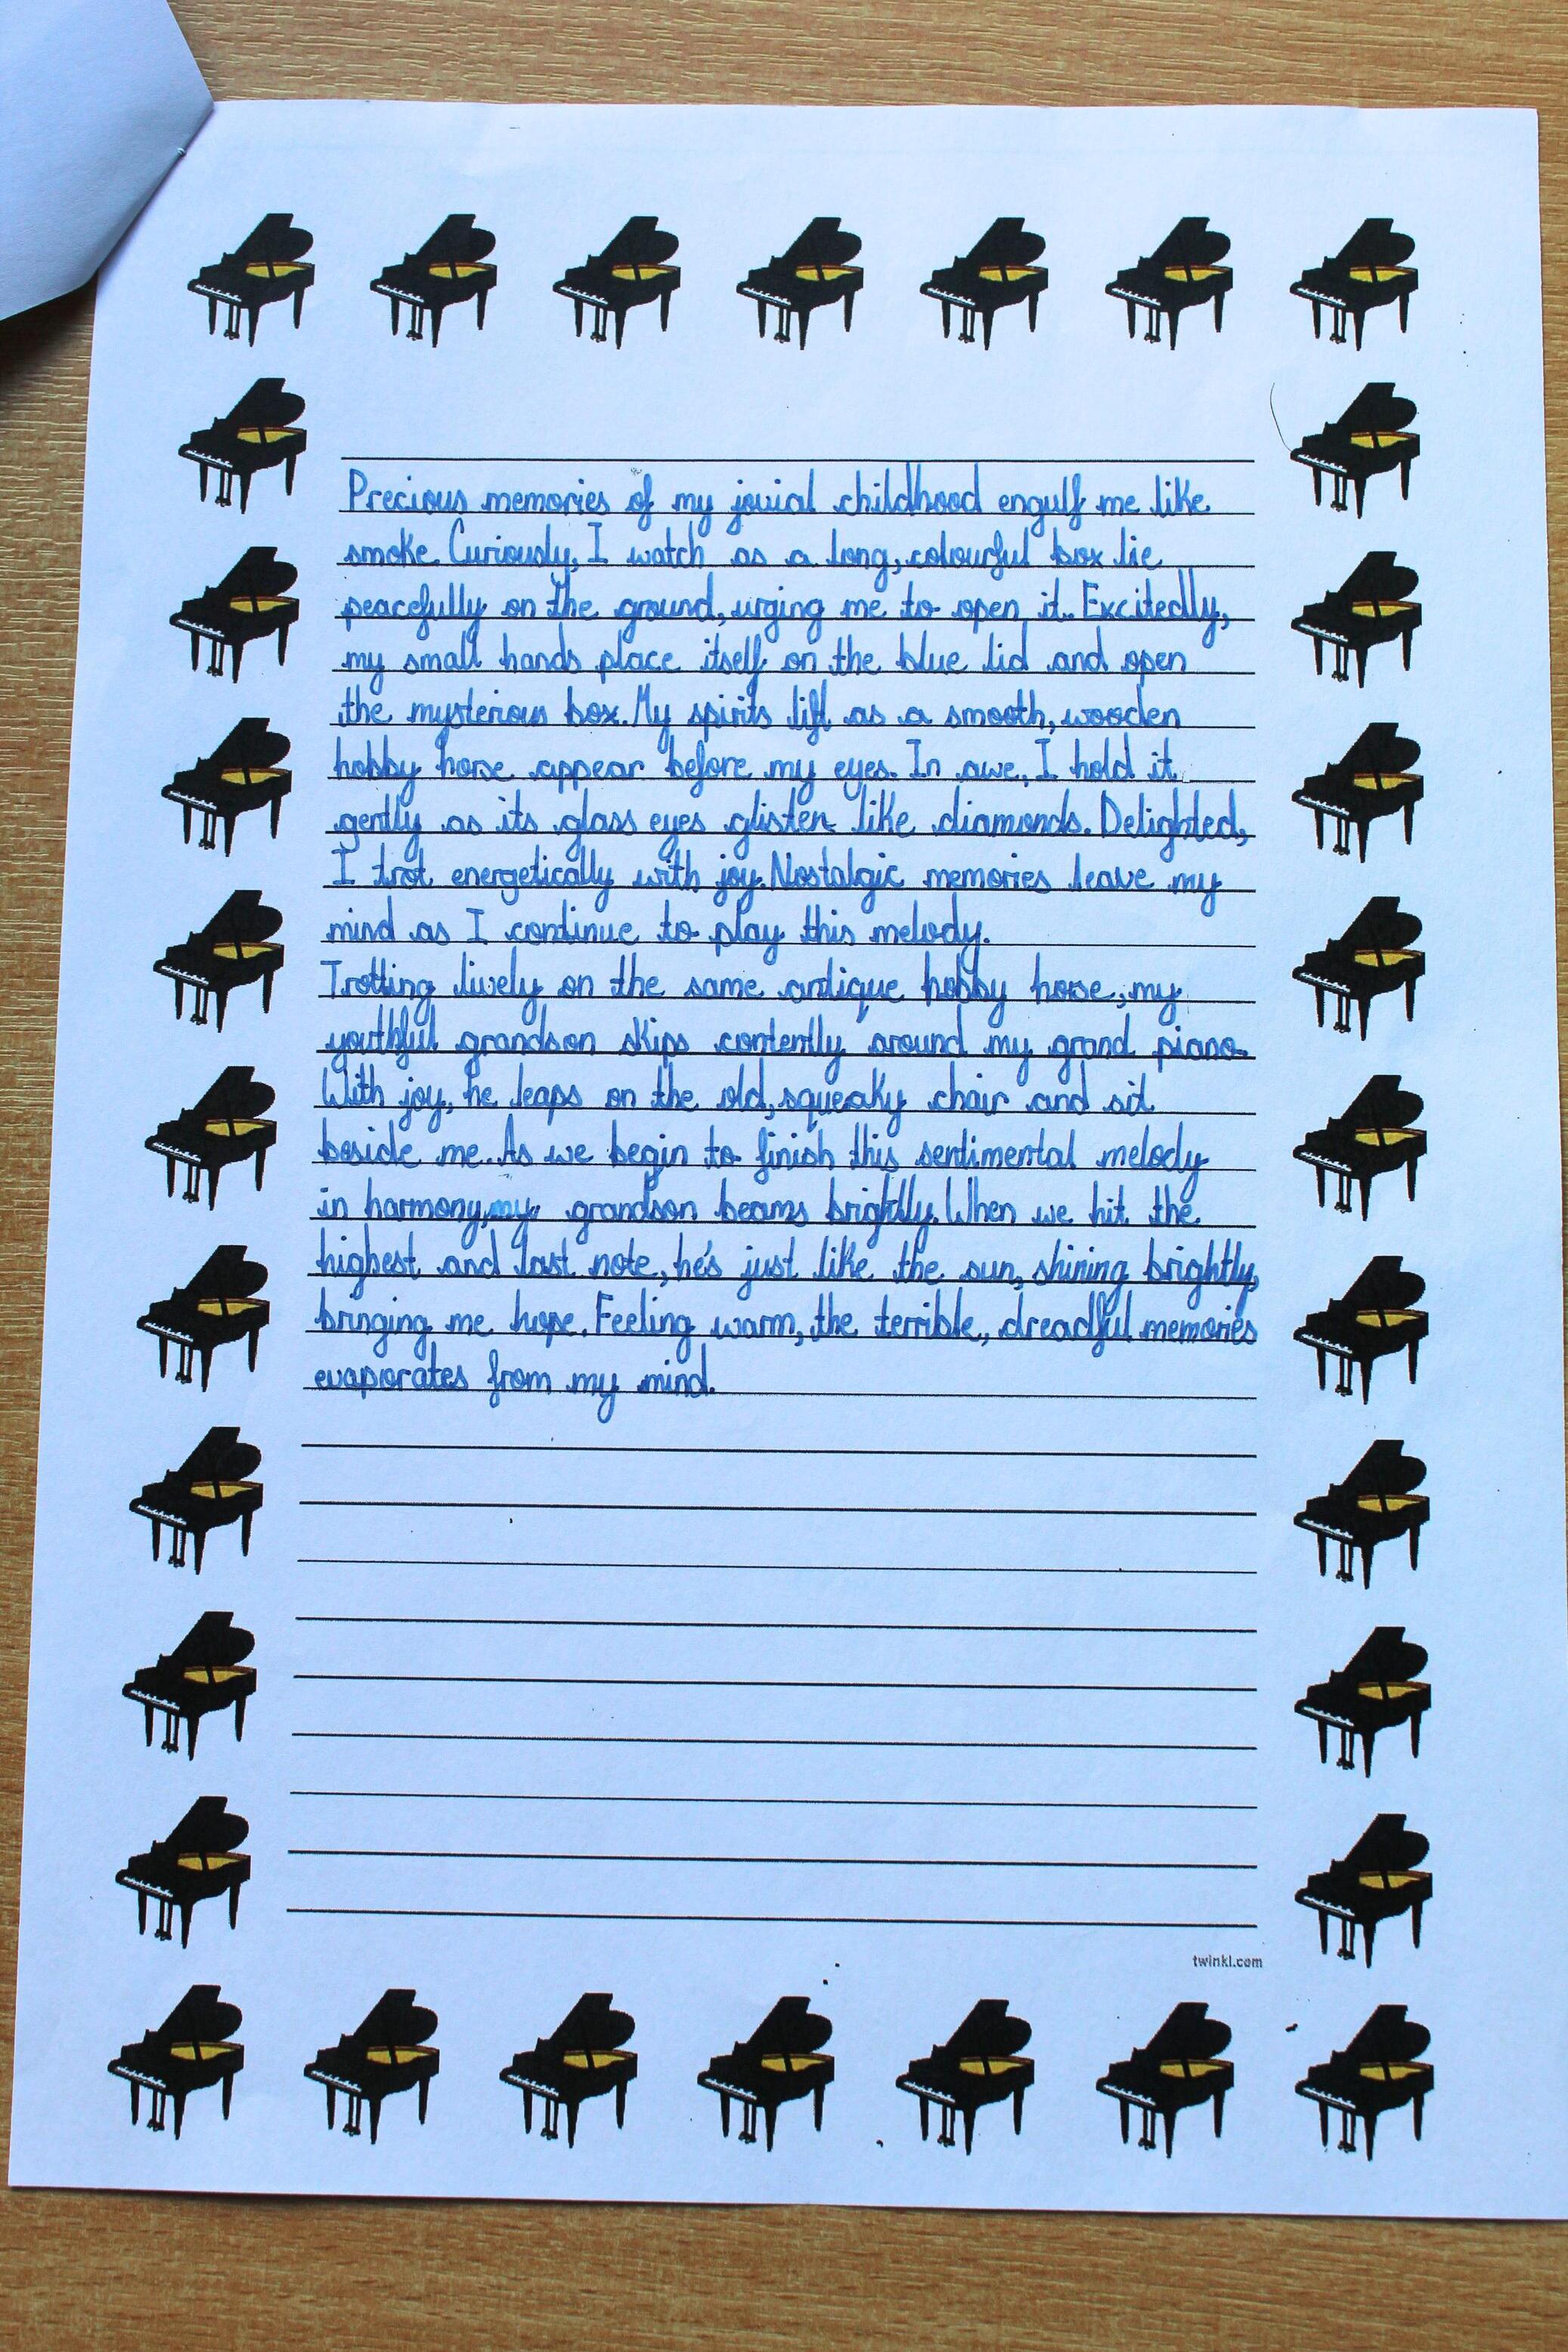 Precious memories of my jovial childhood engulf me like
smoke. Curiously, I watch as a long, colourful box lie
peacefully on the ground, urging me to open it. Excitedly,
my small hands place itself on the blue lid and open
the mysterious box. My spirits lift as a smooth, wooden
hobby horse appear before my eyes. In awe, I hold it
gently as its glass eyes glisten like diamonds. Delighted,
I trot energetically with joy. Nostalgic memories leave my
mind as I continue to play this melody.
Trotting lively on the same antique hobby horse, my
youthful grandson skips contently around my grand piano.
With joy, he leaps on the old, squeaky chair and sit
beside me. As we begin to finish this sentimental melody
in harmony, my grandson beams brightly. When we hit the
highest and last note, he's just like the sun, shining brightly,
bringing me hope. Feeling warm, the terrible, dreadful memories
evaporates from my mind.
twinkl.com